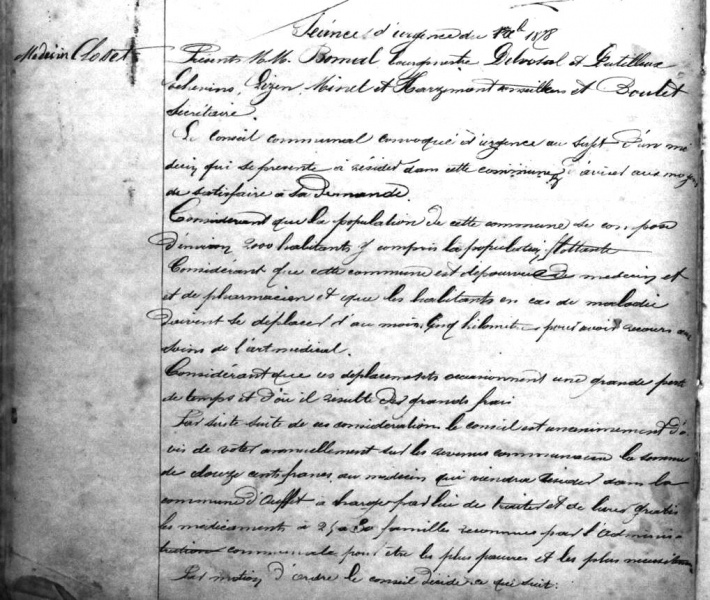 Séance d'urgence du 1878
Médecin Closset
Présents M.M. Bomal bourgmestre Delvosal et
Echevins, Lizen, Minet et Hargimont conseillers et Boulet
Secrétaire.
Le Conseil communal convoqué d'urgence au sujet d'un mé
decin qui se presente à résider dans cette commune d'aviser aux moyens
de satisfaire à sa Demande.
Considérant que la population de cette commune se compose
d'environ 2000 habitants y compris la population flottante
Considérant que cette commune est dépourvue de medecin et
et de pharmacien et que les habitants en cas de maladie
doivent se déplacer d'au moins cinq kilomètres pour avoir recours aux
soins de l'art medical.
Considérant que ces deplacements occasionnent une grande perte
de temps et d'où il résulte des grands frais
Par suite suite de ces considérations le conseil est unanimement d'a
vis de voter annuellement sur les revenus communaux la somme
de douze cents francs au medecin qui viendra resider dans la
commune d'Ouffet à charge par lui de traiter et de livrer gratis
les medicaments à 25 a 30 familles reconnues par l'adminis
tration communale pour être les plus pauvres et les plus necessiteuses
Par motion d'ordre le conseil décide ce qui suit: